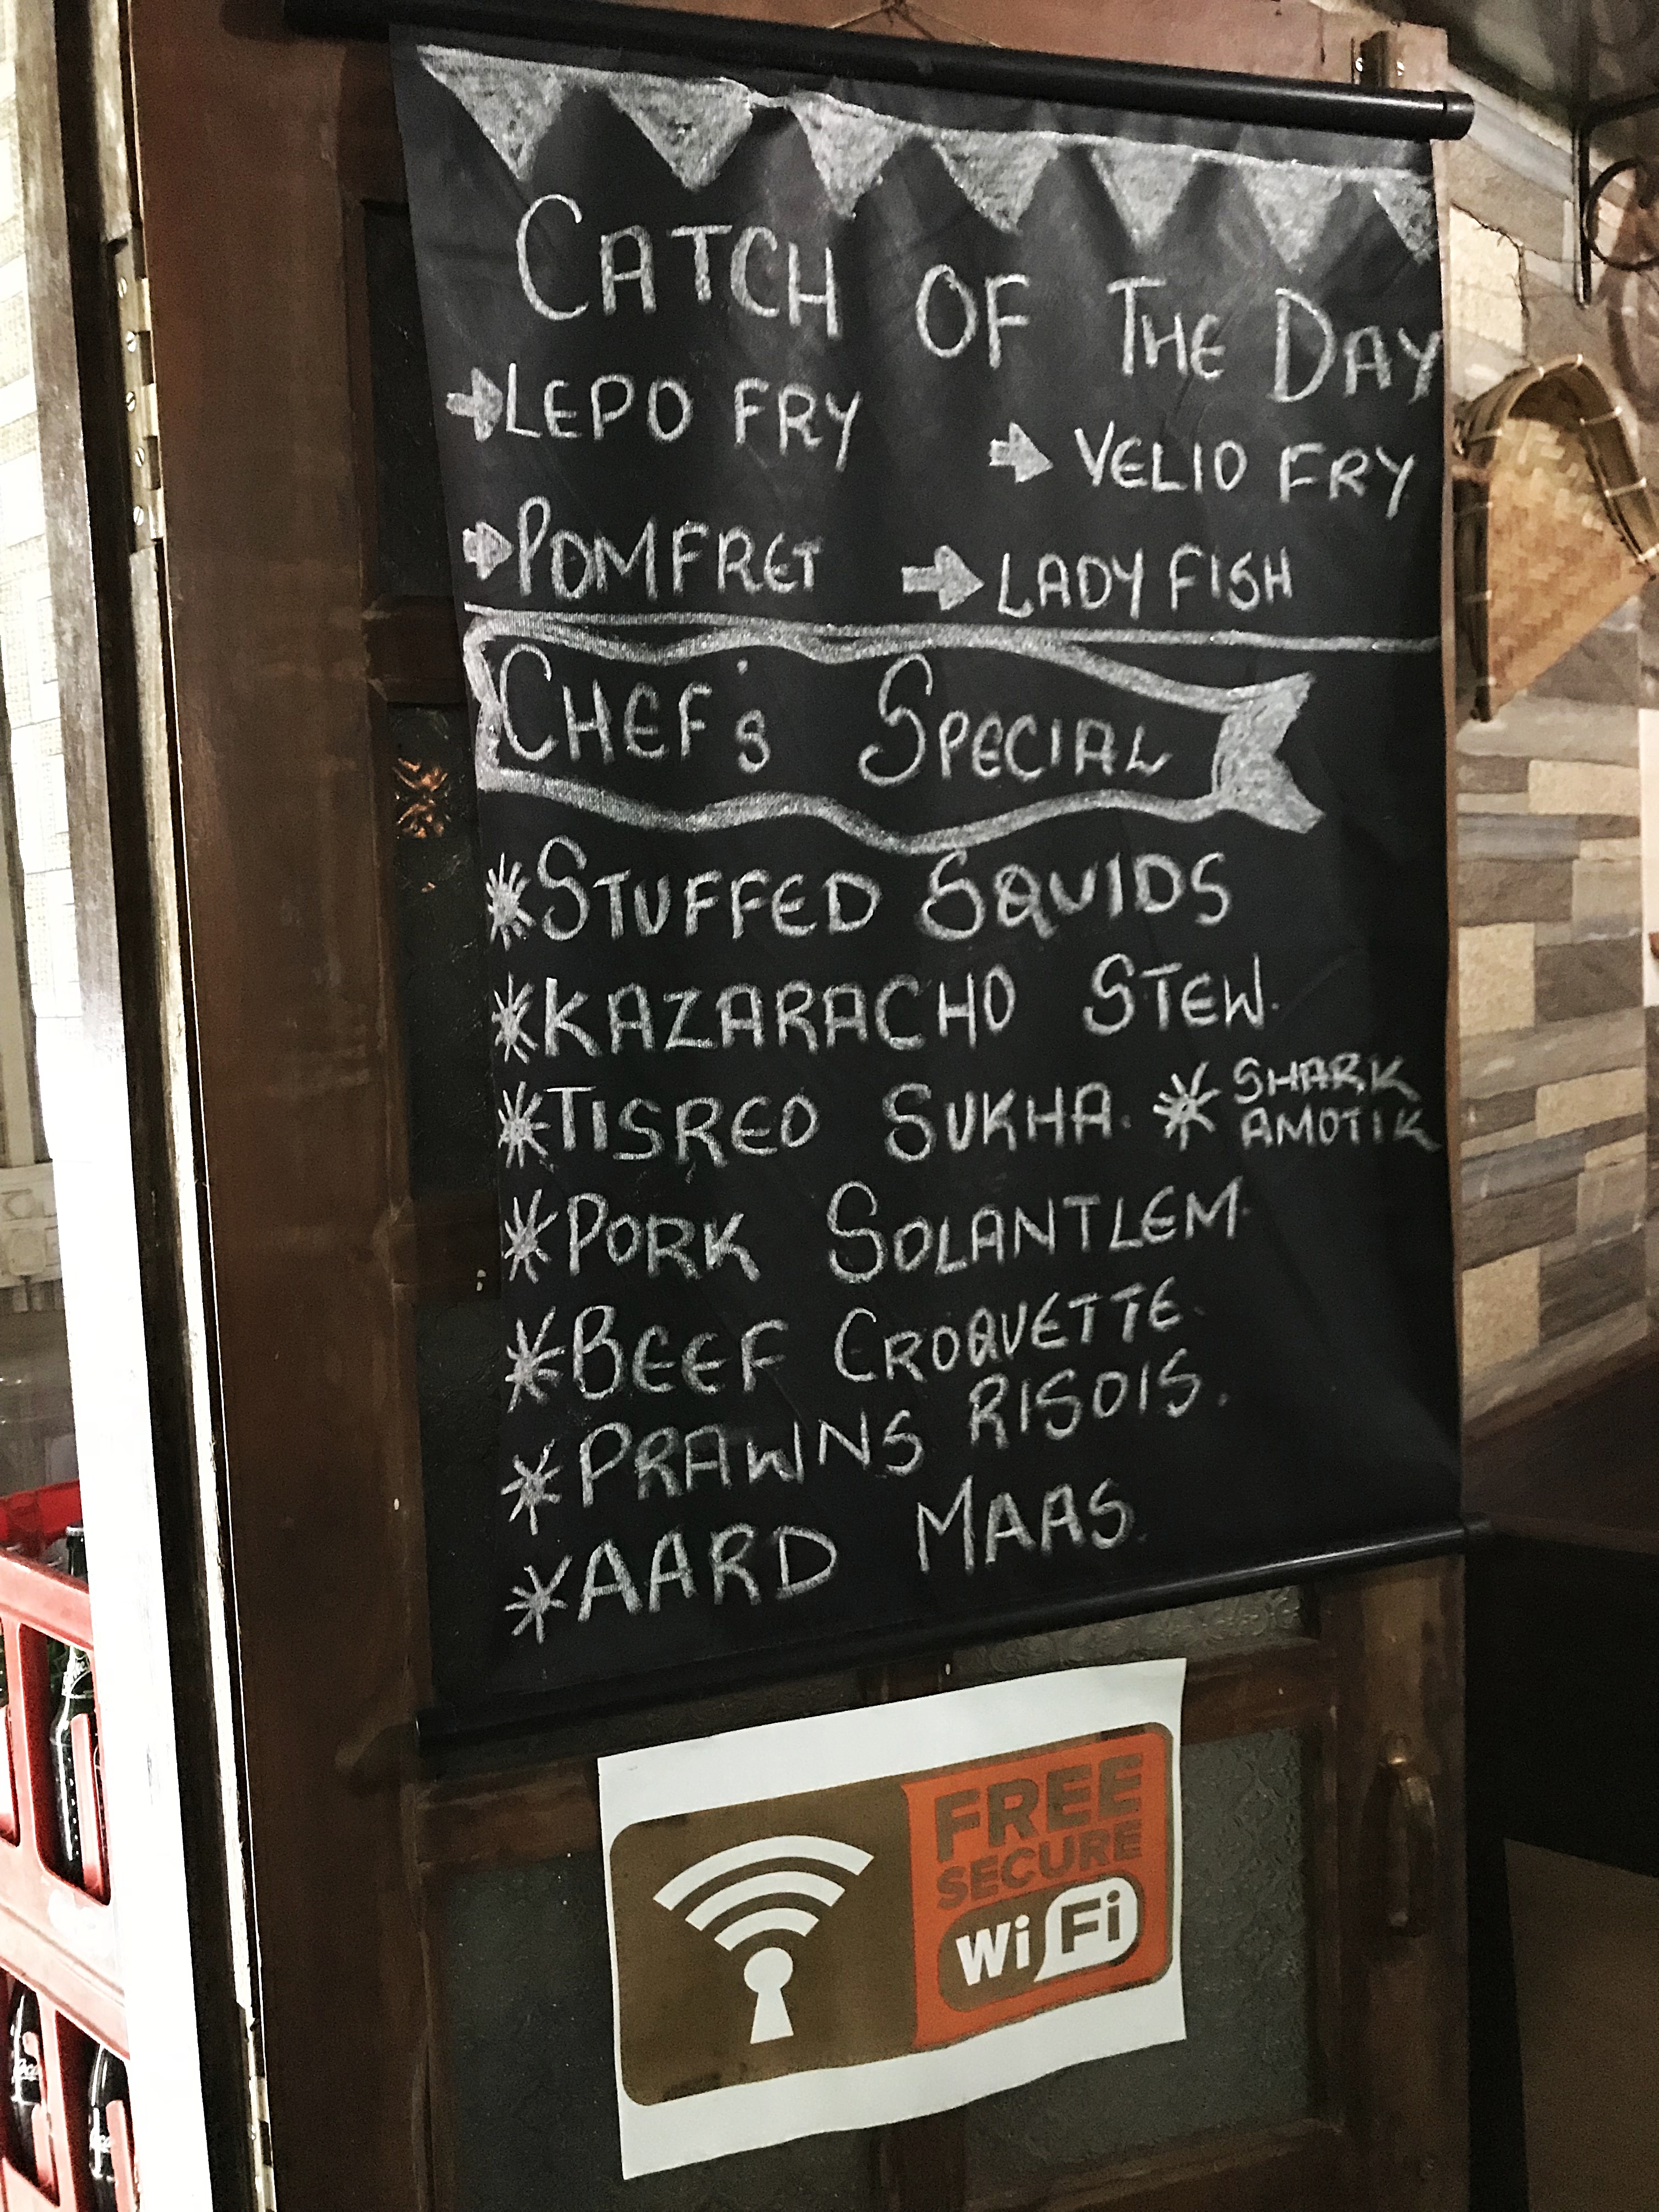 CATCH OF THE DAY
LEPO FRY
VELIO FRY
POMFRET
LADY FISH
CHEF's SPECIAL
STUFFED SQUIDS
KAZARACHO STEW.
TISREO SUKHA.
SHARK
AMOTIK
PORK SOLANTLEM.
BEEF CROQUETTE.
PRAWNS RISOIS.
AARD MAAS.
FREE
SECURE
WiFi